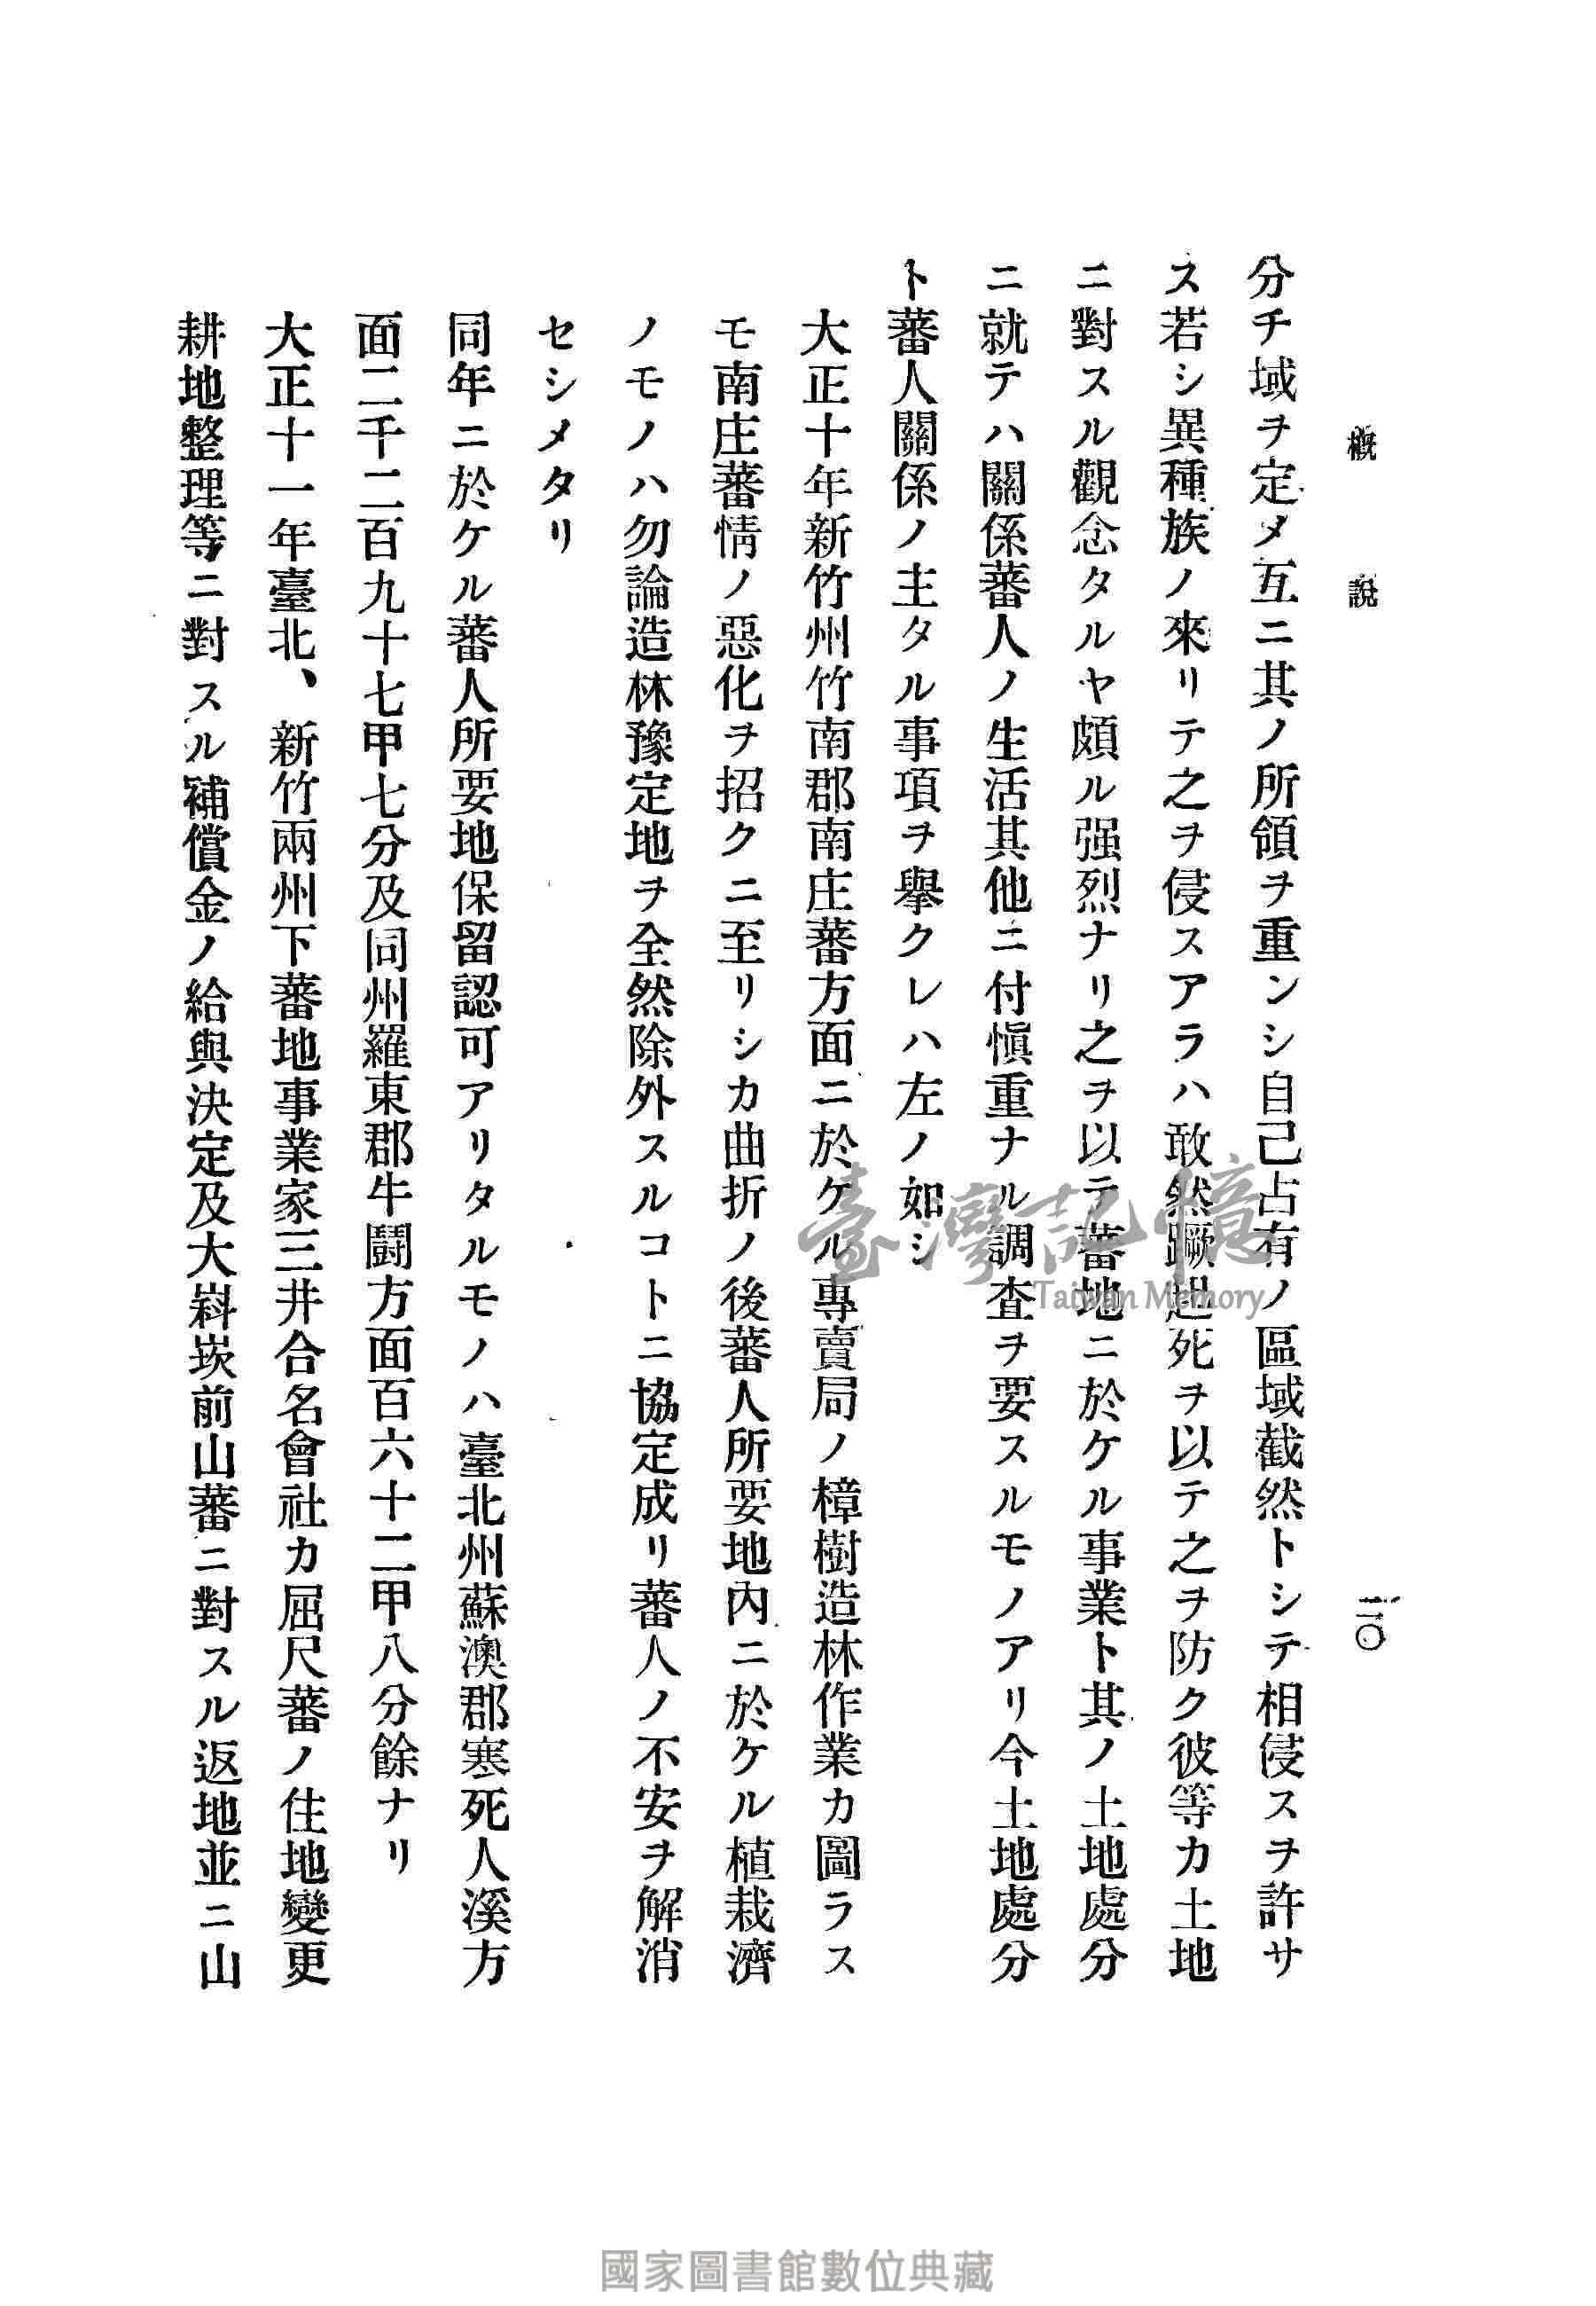 概說
二〇
分チ域ヲ定メ互ニ其ノ所領ヲ重ンシ自己占有ノ區域截然トシテ相侵スヲ許サ
ス若シ異種族ノ來リテ之ヲ侵スアラハ敢然蹶起死ヲ以テ之ヲ防ク彼等カ土地
ニ對スル觀念タルヤ頗ル强烈ナリ之ヲ以テ蕃地ニ於ケル事業ト其ノ土地處分
ニ就テハ關係蕃人ノ生活其他ニ付愼重ナル調査ヲ要スルモノアリ今土地處分
ト蕃人關係ノ主タル事項ヲ擧クレハ左ノ如シ
大正十年新竹州竹南郡南庄蕃方面ニ於ケル專賣局ノ樟樹造林作業カ圖ラス
モ南庄蕃情ノ惡化ヲ招クニ至リシカ曲折ノ後蕃人所要地內ニ於ケル植栽濟
ノモノハ勿論造林豫定地ヲ全然除外スルコトニ協定成リ蕃人ノ不安ヲ解消
セシメタリ
同年ニ於ケル蕃人所要地保留認可アリタルモノハ臺北州蘇澳郡寒死人溪方
面二千二百九十七甲七分及同州羅東郡牛鬪方面百六十二甲八分餘ナリ
大正十一年臺北、新竹兩州下蕃地事業家三井合名會社カ屈尺蕃ノ住地變更
耕地整理等ニ對スル補償金ノ給與決定及大嵙崁前山蕃ニ對スル返地並ニ山
臺灣記憶
Taiwan Memory
國家圖書館數位典藏